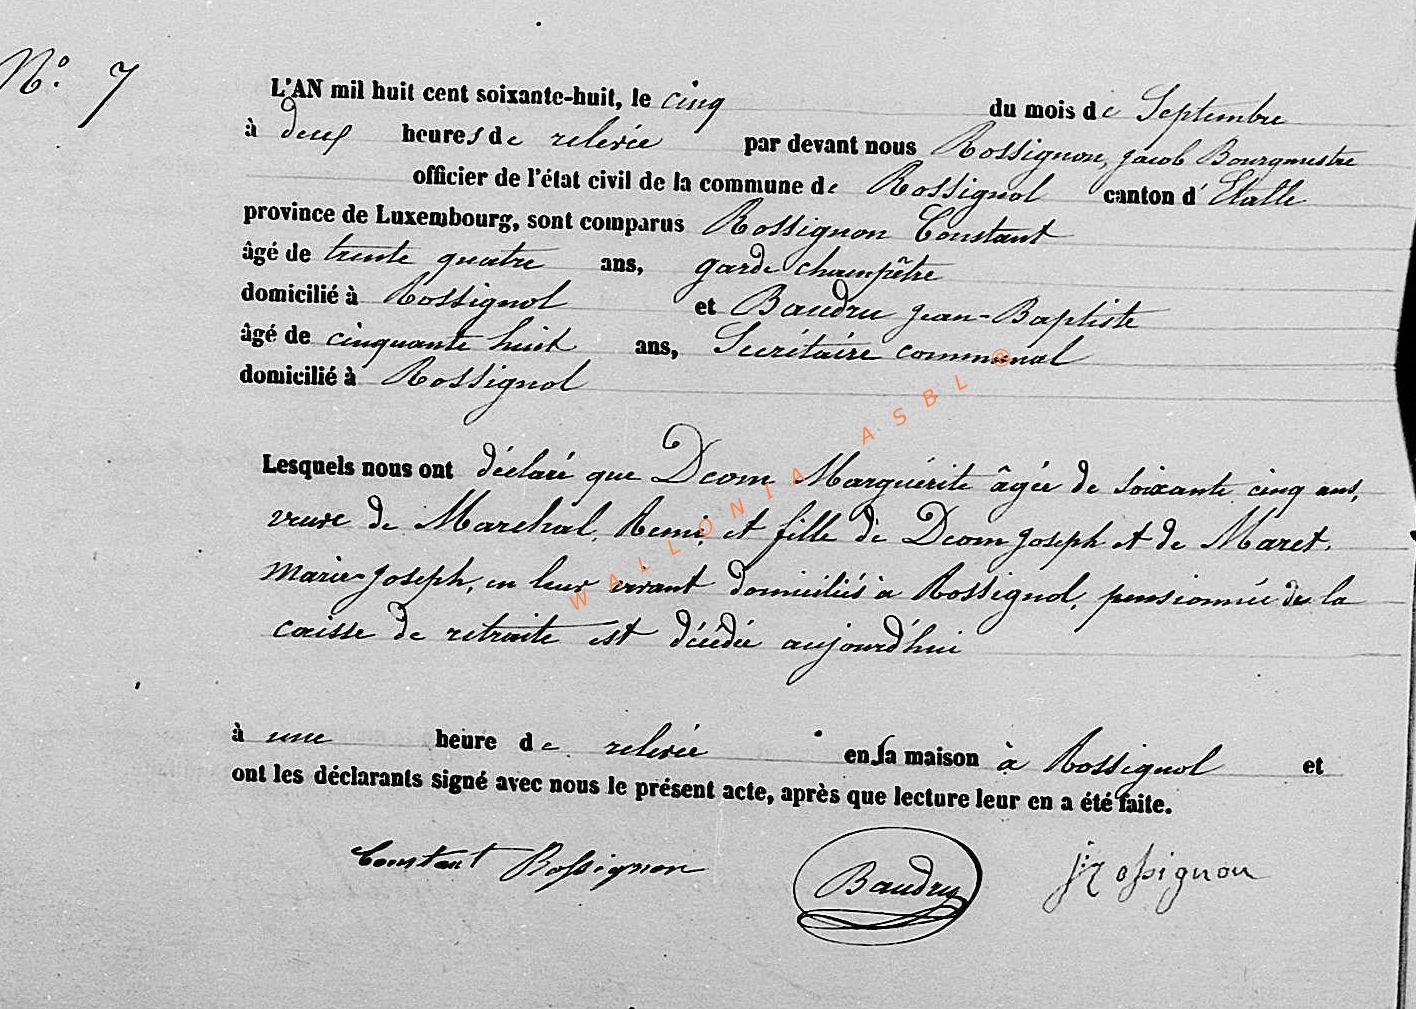 N° 7
L'AN mil huit cent soixante-huit, le cinq du mois de Septembre
à deux heures de relevée par devant nous Rossignon, Jacob Bourgmestre
officier de l'état civil de la commune de Rossignol canton d'Etalle
province de Luxembourg, sont comparus Rossignon Constant
âgé de trente quatre ans, garde champêtre
domicilié à Rossignol et Baudru Jean-Baptiste
âgé de cinquante huit ans, Secrétaire communal
domicilié à Rossignol
Lesquels nous ont déclaré que Dcom Marguérite âgée de soixante cinq ans,
veuve de Marechal, Remi, et fille de Dcom Joseph et de Maret,
Marie-Joseph, en leur vivant domiciliés à Rossignol, pensionnée de la
caisse de retraite est décédée aujourd'hui
à une heure de relevée en sa maison à Rossignol et
ont les déclarants signé avec nous le présent acte, après que lecture leur en a été faite.
Constant Rossignon Baudru J. Rossignon
WALLONIA ASBL ©